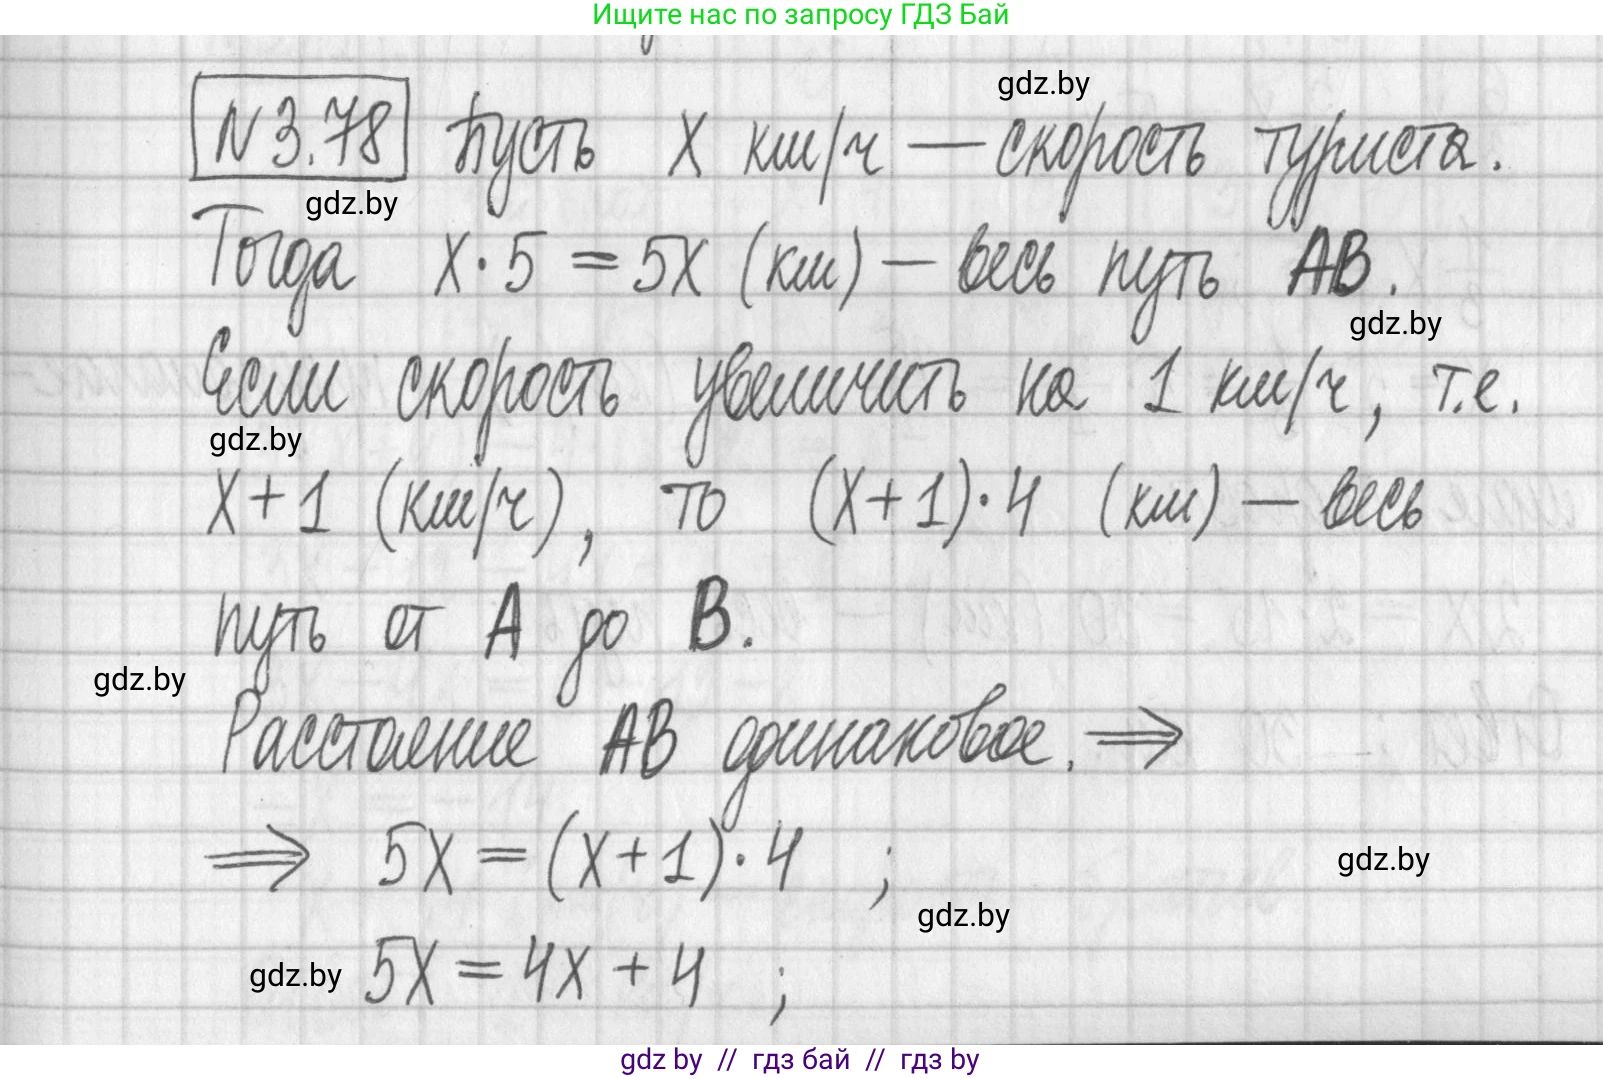 Ищите нас по запросу ГДЗ Бай
gdz.by
N 3.78 Пусть x км/ч — скорость туриста.
gdz.by
Тогда x·5 = 5x (км) — весь путь AB.
gdz.by
Если скорость увеличить на 1 км/ч, т.е.
gdz.by
x+1 (км/ч), то (x+1)·4 (км) — весь
путь от A до B.
gdz.by
Расстояние AB одинаковое. ⇒
⇒ 5x = (x+1)·4 ;
gdz.by
gdz.by
gdz.by 5x = 4x + 4 ;
gdz by // гдз бай // гдз by